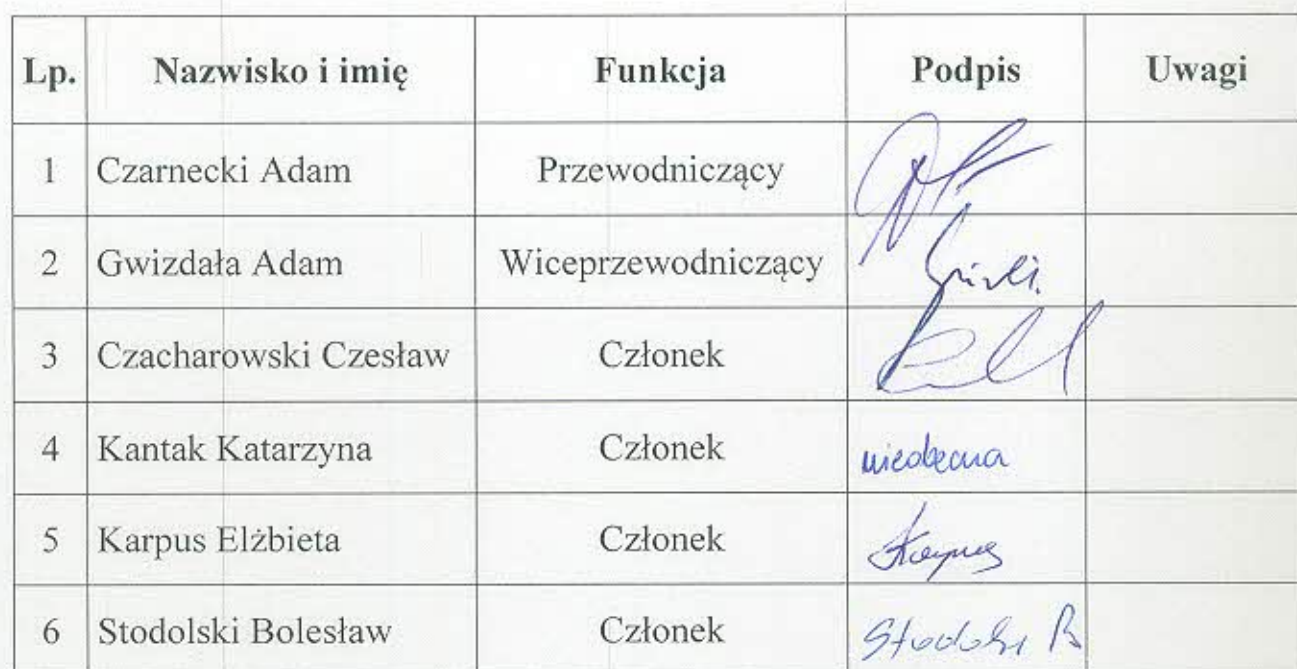 Lp. Nazwisko i imię Funkcja Podpis Uwagi
1 Czarnecki Adam Przewodniczący
2 Gwizdała Adam Wiceprzewodniczący
3 Czacharowski Czesław Członek
4 Kantak Katarzyna Członek nieobecna
5 Karpus Elżbieta Członek
6 Stodolski Bolesław Członek Stodolski B